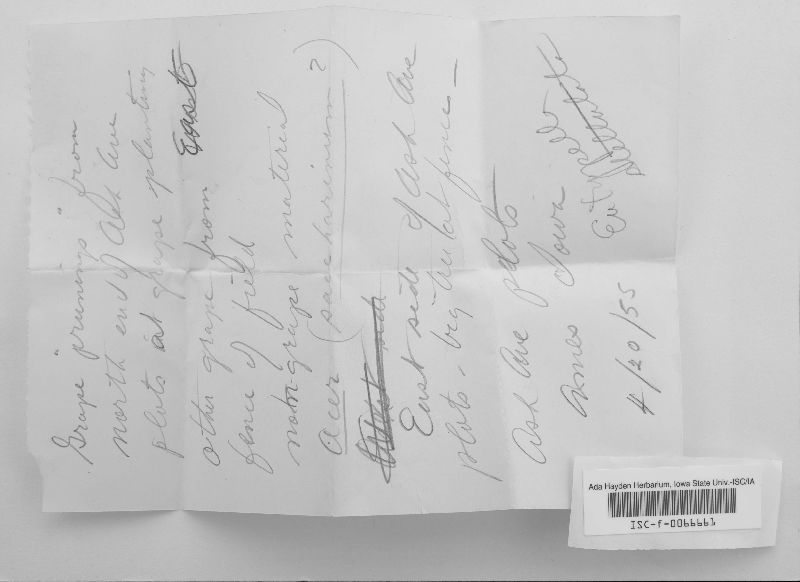 Grape "prunings" from
north end of Ash Ave
plots at grape planting
other grape from East
fence of field
non-grape material
Acer (saccharinum?)
East side of Ash Ave
plots, big tree at fence —
Ash Ave plots
Ames Iowa
4/20/55
Eutypella
Ada Hayden Herbarium, Iowa State Univ.-ISC/IA
ISC-f-0066661